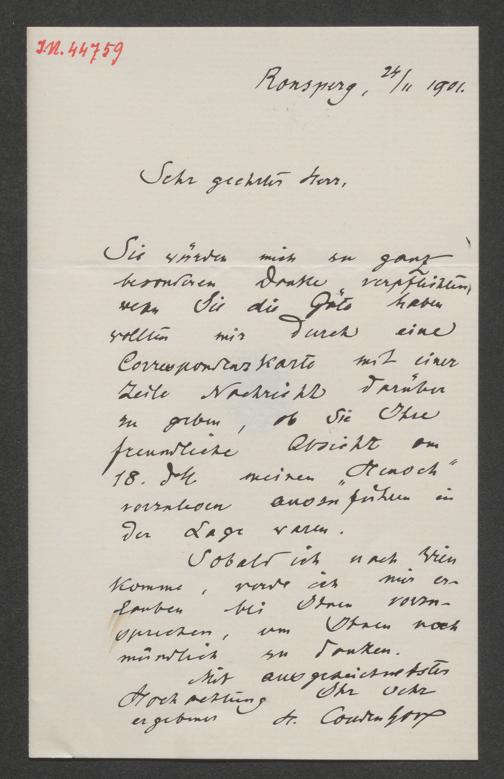 I.N. 44759
Ronsperg, 24/II 1901.
Sehr geehrter Herr,
Sie würden mich zu ganz
besonderem Danke verpflichten,
wenn Sie die Güte haben
wollten mir durch eine
Correspondenzkarte mit einer
Zeile Nachricht darüber
zu geben, ob Sie Ihre
freundliche Absicht am
18. d.M. meinen "Henoch"
vorzulesen auszuführen in
der Lage waren.
Sobald ich nach Wien
komme, werde ich mir er-
lauben bei Ihnen vorzu-
sprechen, um Ihnen noch
mündlich zu danken.
Mit ausgezeichnetster
Hochachtung Ihr sehr
ergebener H. Coudenhove